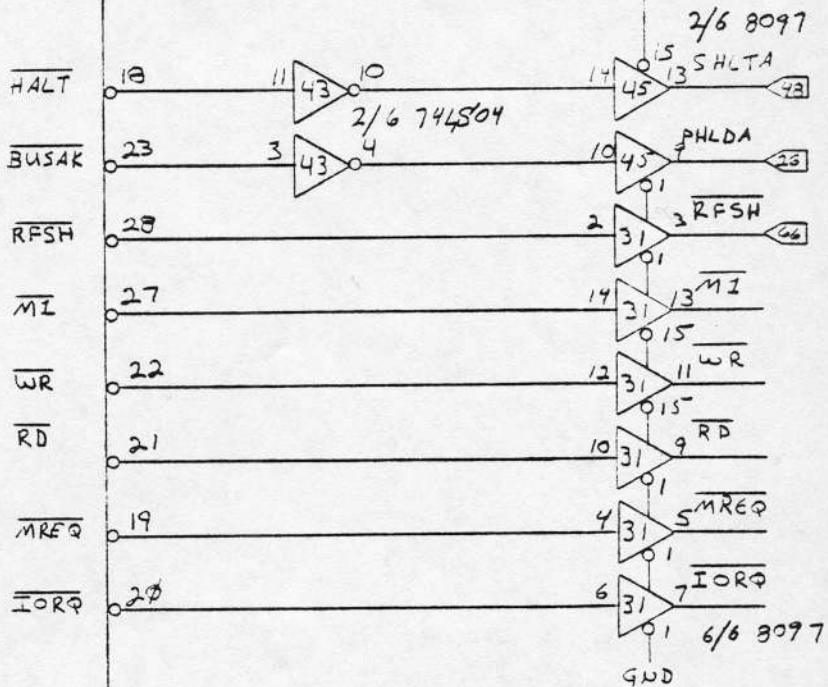 2/6 8097
15
HALT 18 11 43 10 14 45 13 SHLTA 43
2/6 74LS04
BUSAK 23 3 43 4 10 45 9 PHLDA 26
1
RFSH 28 2 31 3 RFSH 66
1
M1 27 14 31 13 M1
15
WR 22 12 31 11 WR
15
RD 21 10 31 9 RD
1
MREQ 19 4 31 5 MREQ
1
IORQ 20 6 31 7 IORQ
1 6/6 8097
GND